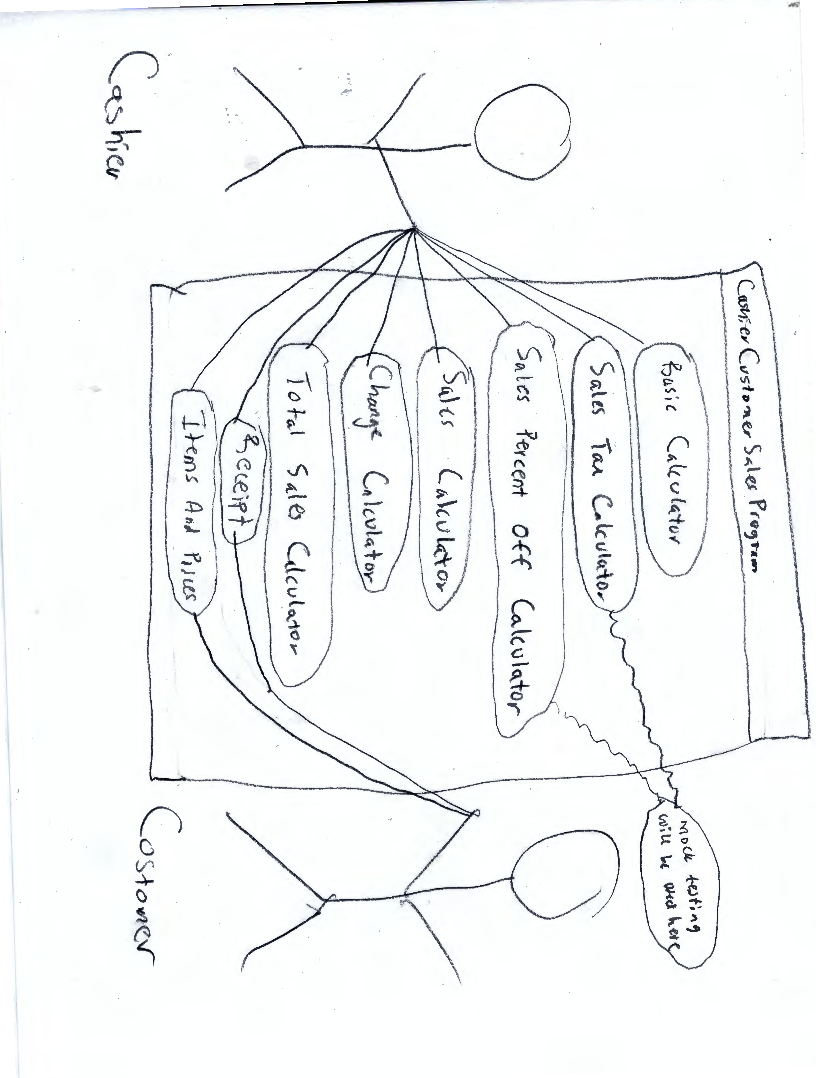 Cashier Customer Sales Program
Basic Calculator
Sales Tax Calculator
Sales Percent Off Calculator
Sales Calculator
Change Calculator
Total Sales Calculator
Receipt
Items And Prices
Cashier
Costomer
mock testing
will be used here